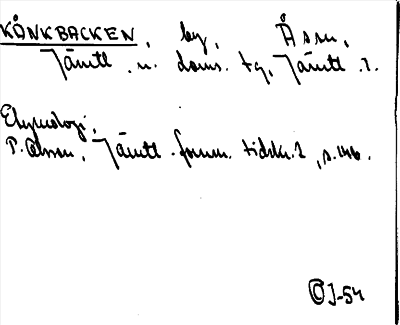 KÅNKBACKEN, by, Åsn,
Jämtl. n. doms. tg, Jämtl. l.
Etymologi,
P. Olsson, Jämtl. fornm. tidskr. 2, s. 146.
OJ-54